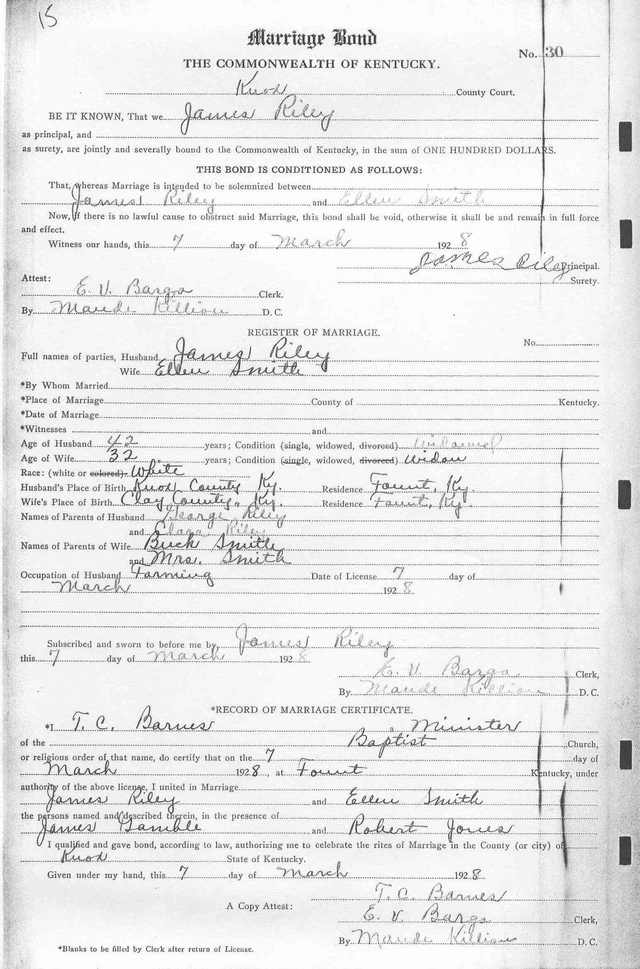 15
Marriage Bond
No. 30
THE COMMONWEALTH OF KENTUCKY.
Knox County Court.
BE IT KNOWN, That we James Riley
as principal, and
as surety, are jointly and severally bound to the Commonwealth of Kentucky, in the sum of ONE HUNDRED DOLLARS.
THIS BOND IS CONDITIONED AS FOLLOWS:
That, whereas Marriage is intended to be solemnized between
James Riley and Ellen Smith
Now, if there is no lawful cause to obstruct said Marriage, this bond shall be void, otherwise it shall and remain in full force
and effect.
Witness our hands, this 7 day of March 1928
James Riley Principal.
Surety.
Attest:
E. V. Bargo Clerk.
By Maude Killion D. C.
REGISTER OF MARRIAGE.
No.
Full names of parties, Husband James Riley
Wife Ellen Smith
*By Whom Married
*Place of Marriage County of Kentucky.
*Date of Marriage
*Witnesses and
Age of Husband 42 years; Condition (single, widowed, divorced) Widowed
Age of Wife 32 years; Condition (single, widowed, divorced) Widow
Race: (white or colored) White
Husband's Place of Birth Knox County Ky. Residence Fount, Ky.
Wife's Place of Birth Clay County, Ky. Residence Fount, Ky.
Names of Parents of Husband George Riley
and Clara Riley
Names of Parents of Wife Buck Smith
and Mrs. Smith
Occupation of Husband Farming Date of License 7 day of
March 1928
Subscribed and sworn to before me by James Riley
this 7 day of March 1928
E. V. Bargo Clerk,
By Maude Killion D. C.
*RECORD OF MARRIAGE CERTIFICATE.
*I T. C. Barnes, a Minister
of the Baptist Church,
or religious order of that name, do certify that on the 7 day of
March 1928, at Fount Kentucky, under
authority of the above license, I united in Marriage
James Riley and Ellen Smith
the persons named and described therein, in the presence of
James Gamble and Robert Jones
I qualified and gave bond, according to law, authorizing me to celebrate the rites of Marriage in the County (or city) of
Knox State of Kentucky.
Given under my hand, this 7 day of March 1928
T. C. Barnes
A Copy Attest: E. V. Bargo Clerk,
By Maude Killion D. C.
*Blanks to be filled by Clerk after return of License.